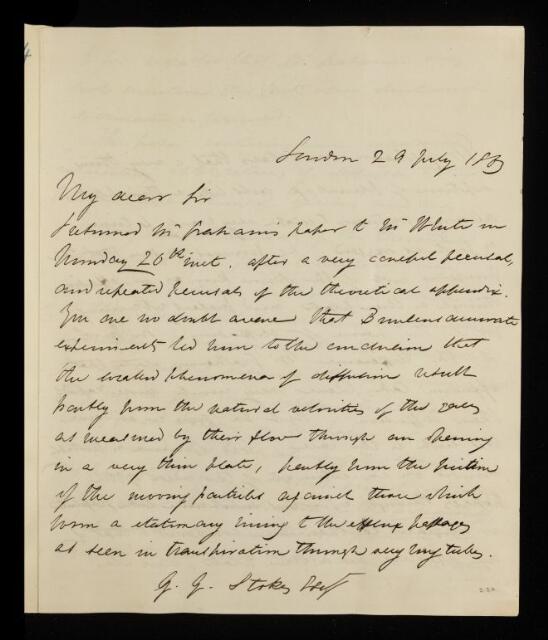 London 29 July 1863
My dear Sir
I returned Mr Graham's paper to Mr White on
Monday 20th inst. after a very careful perusal,
and repeated perusals of the theoretical appendix.
You are no doubt aware that Bunsens accurate
experiments led him to the conclusion that
the located phenomena of diffusion result
partly from the natural velocities of the gases
as measured by their flow through an opening
in a very thin plate, partly from the friction
of the moving particles against those which
form a stationary lining to the efflux passages
as seen in transpiration through very long tubes.
G. G. Stokes Esq